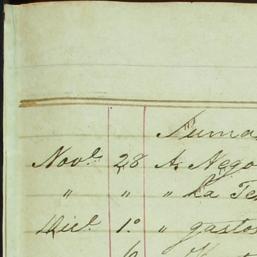 Suma
Nov.e 28 A. Nego
" " " La Te
Dic.e 1.o " gastos